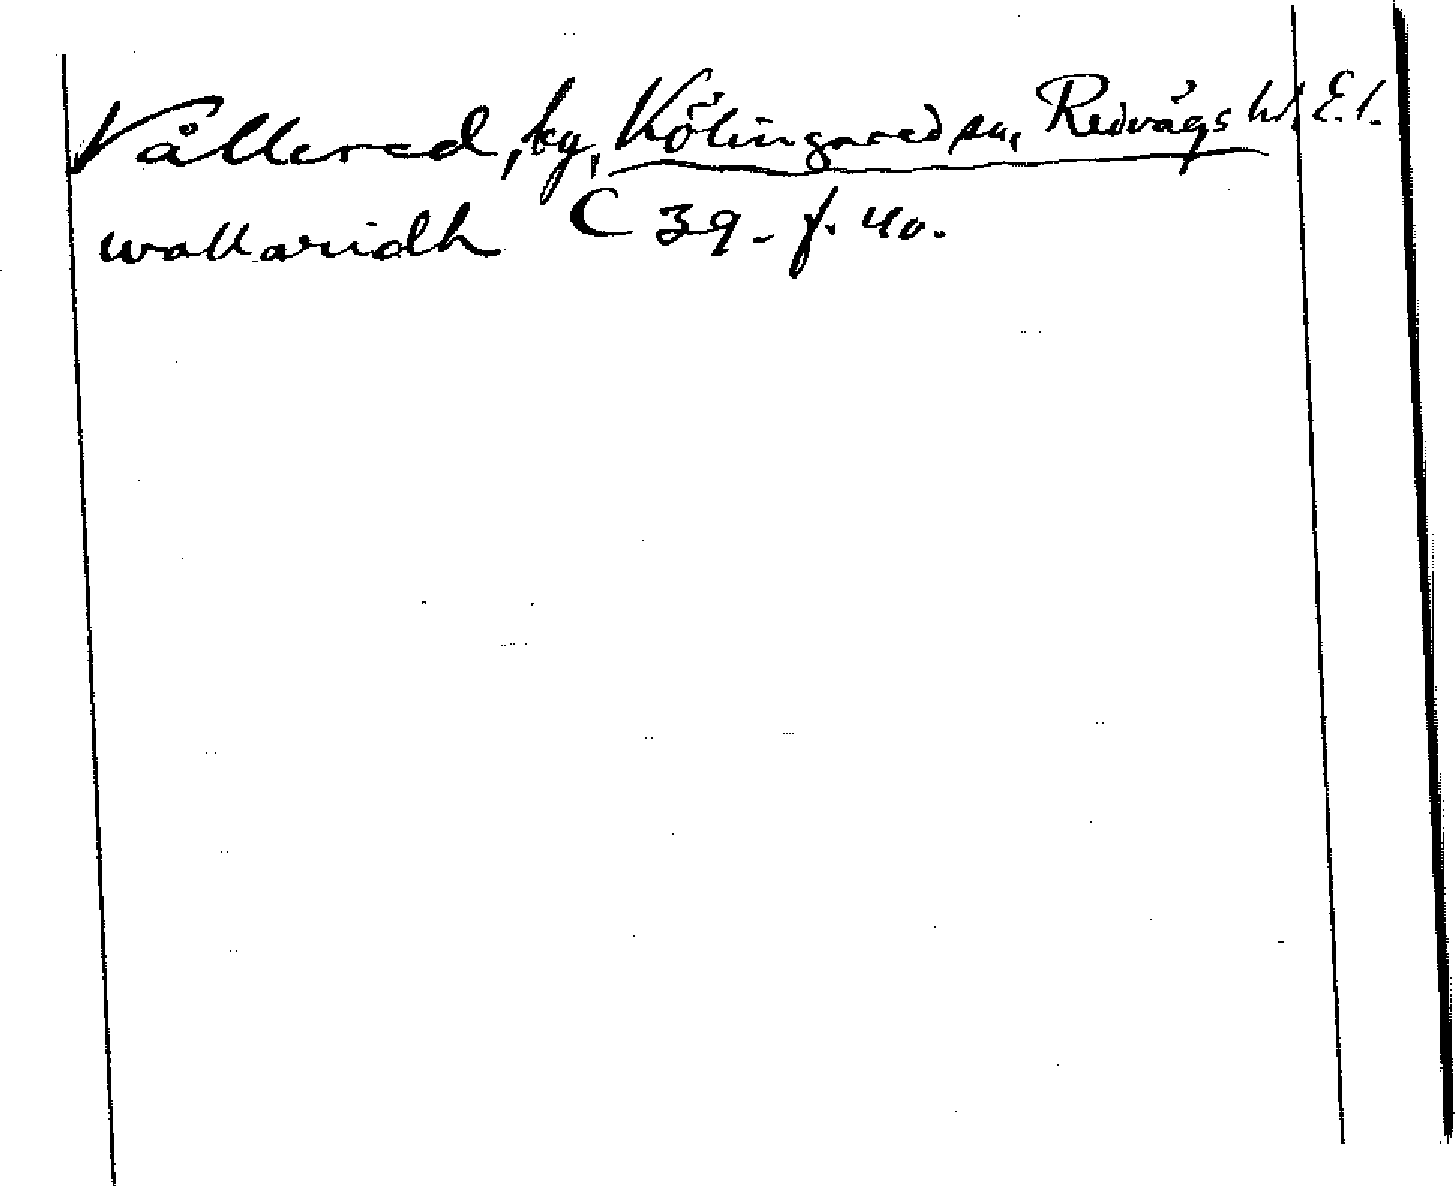 Vållered, by, Kölingared sn, Redvägs hd. E.l.
wallaridh C 39 - f. 40.